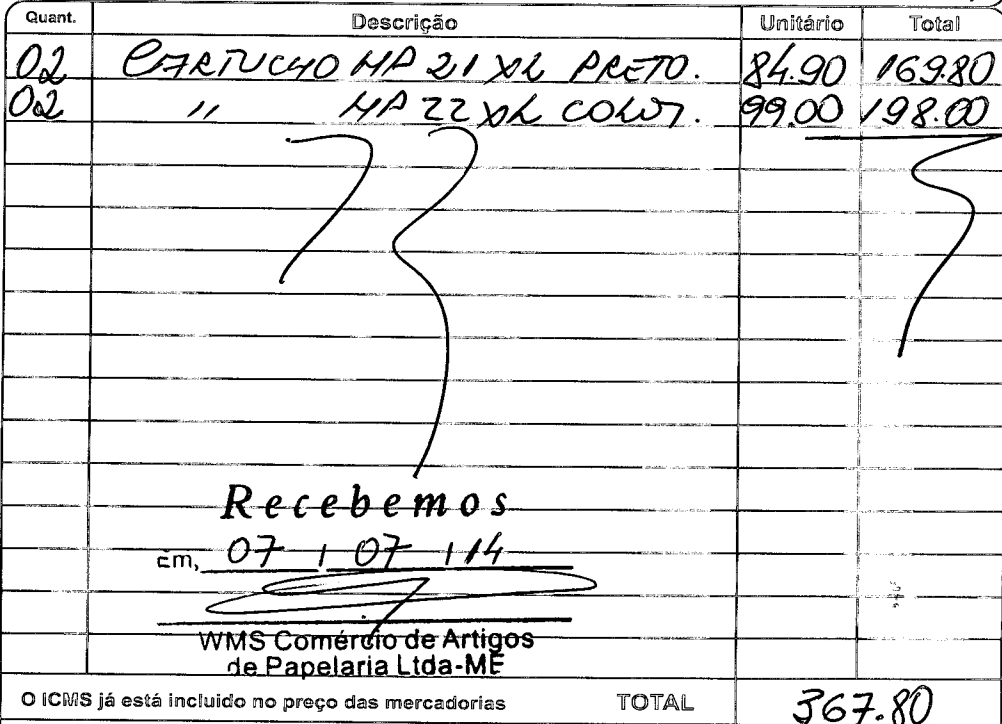 Quant. Descrição Unitário Total
02 CARTUCHO HP 21 XL PRETO. 84.90 169.80
02 " HP 22 XL COLOR. 99.00 198.00
Recebemos
Em, 07 / 07 / 14
WMS Comércio de Artigos
de Papelaria Ltda-ME
O ICMS já está incluido no preço das mercadorias TOTAL 367.80